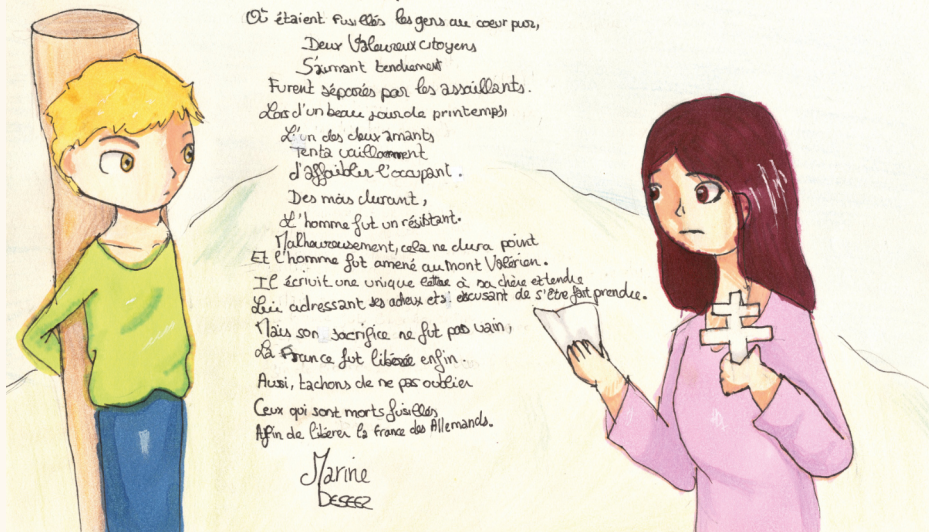 Où étaient fusillés les gens au coeur pur,
Deux Valeureux citoyens
S'aimant tendrement
Furent séparés par les assaillants.
Lors d'un beau jour de printemps,
L'un des deux amants
Tenta vaillamment
d'affaibler l'occupant.
Des mois durant,
L'homme fut un résistant.
Malheureusement, cela ne dura point
Et l'homme fut amené au mont Valérien.
Il écrivit une unique lettre à sa chère et tendre
Lui adressant ses adieux et s'excusant de s'être fait prendre.
Mais son sacrifice ne fut pas vain,
La France fut libérée enfin.
Aussi, tachons de ne pas oublier
Ceux qui sont morts fusillés
Afin de libérer la France des Allemands.
Marine